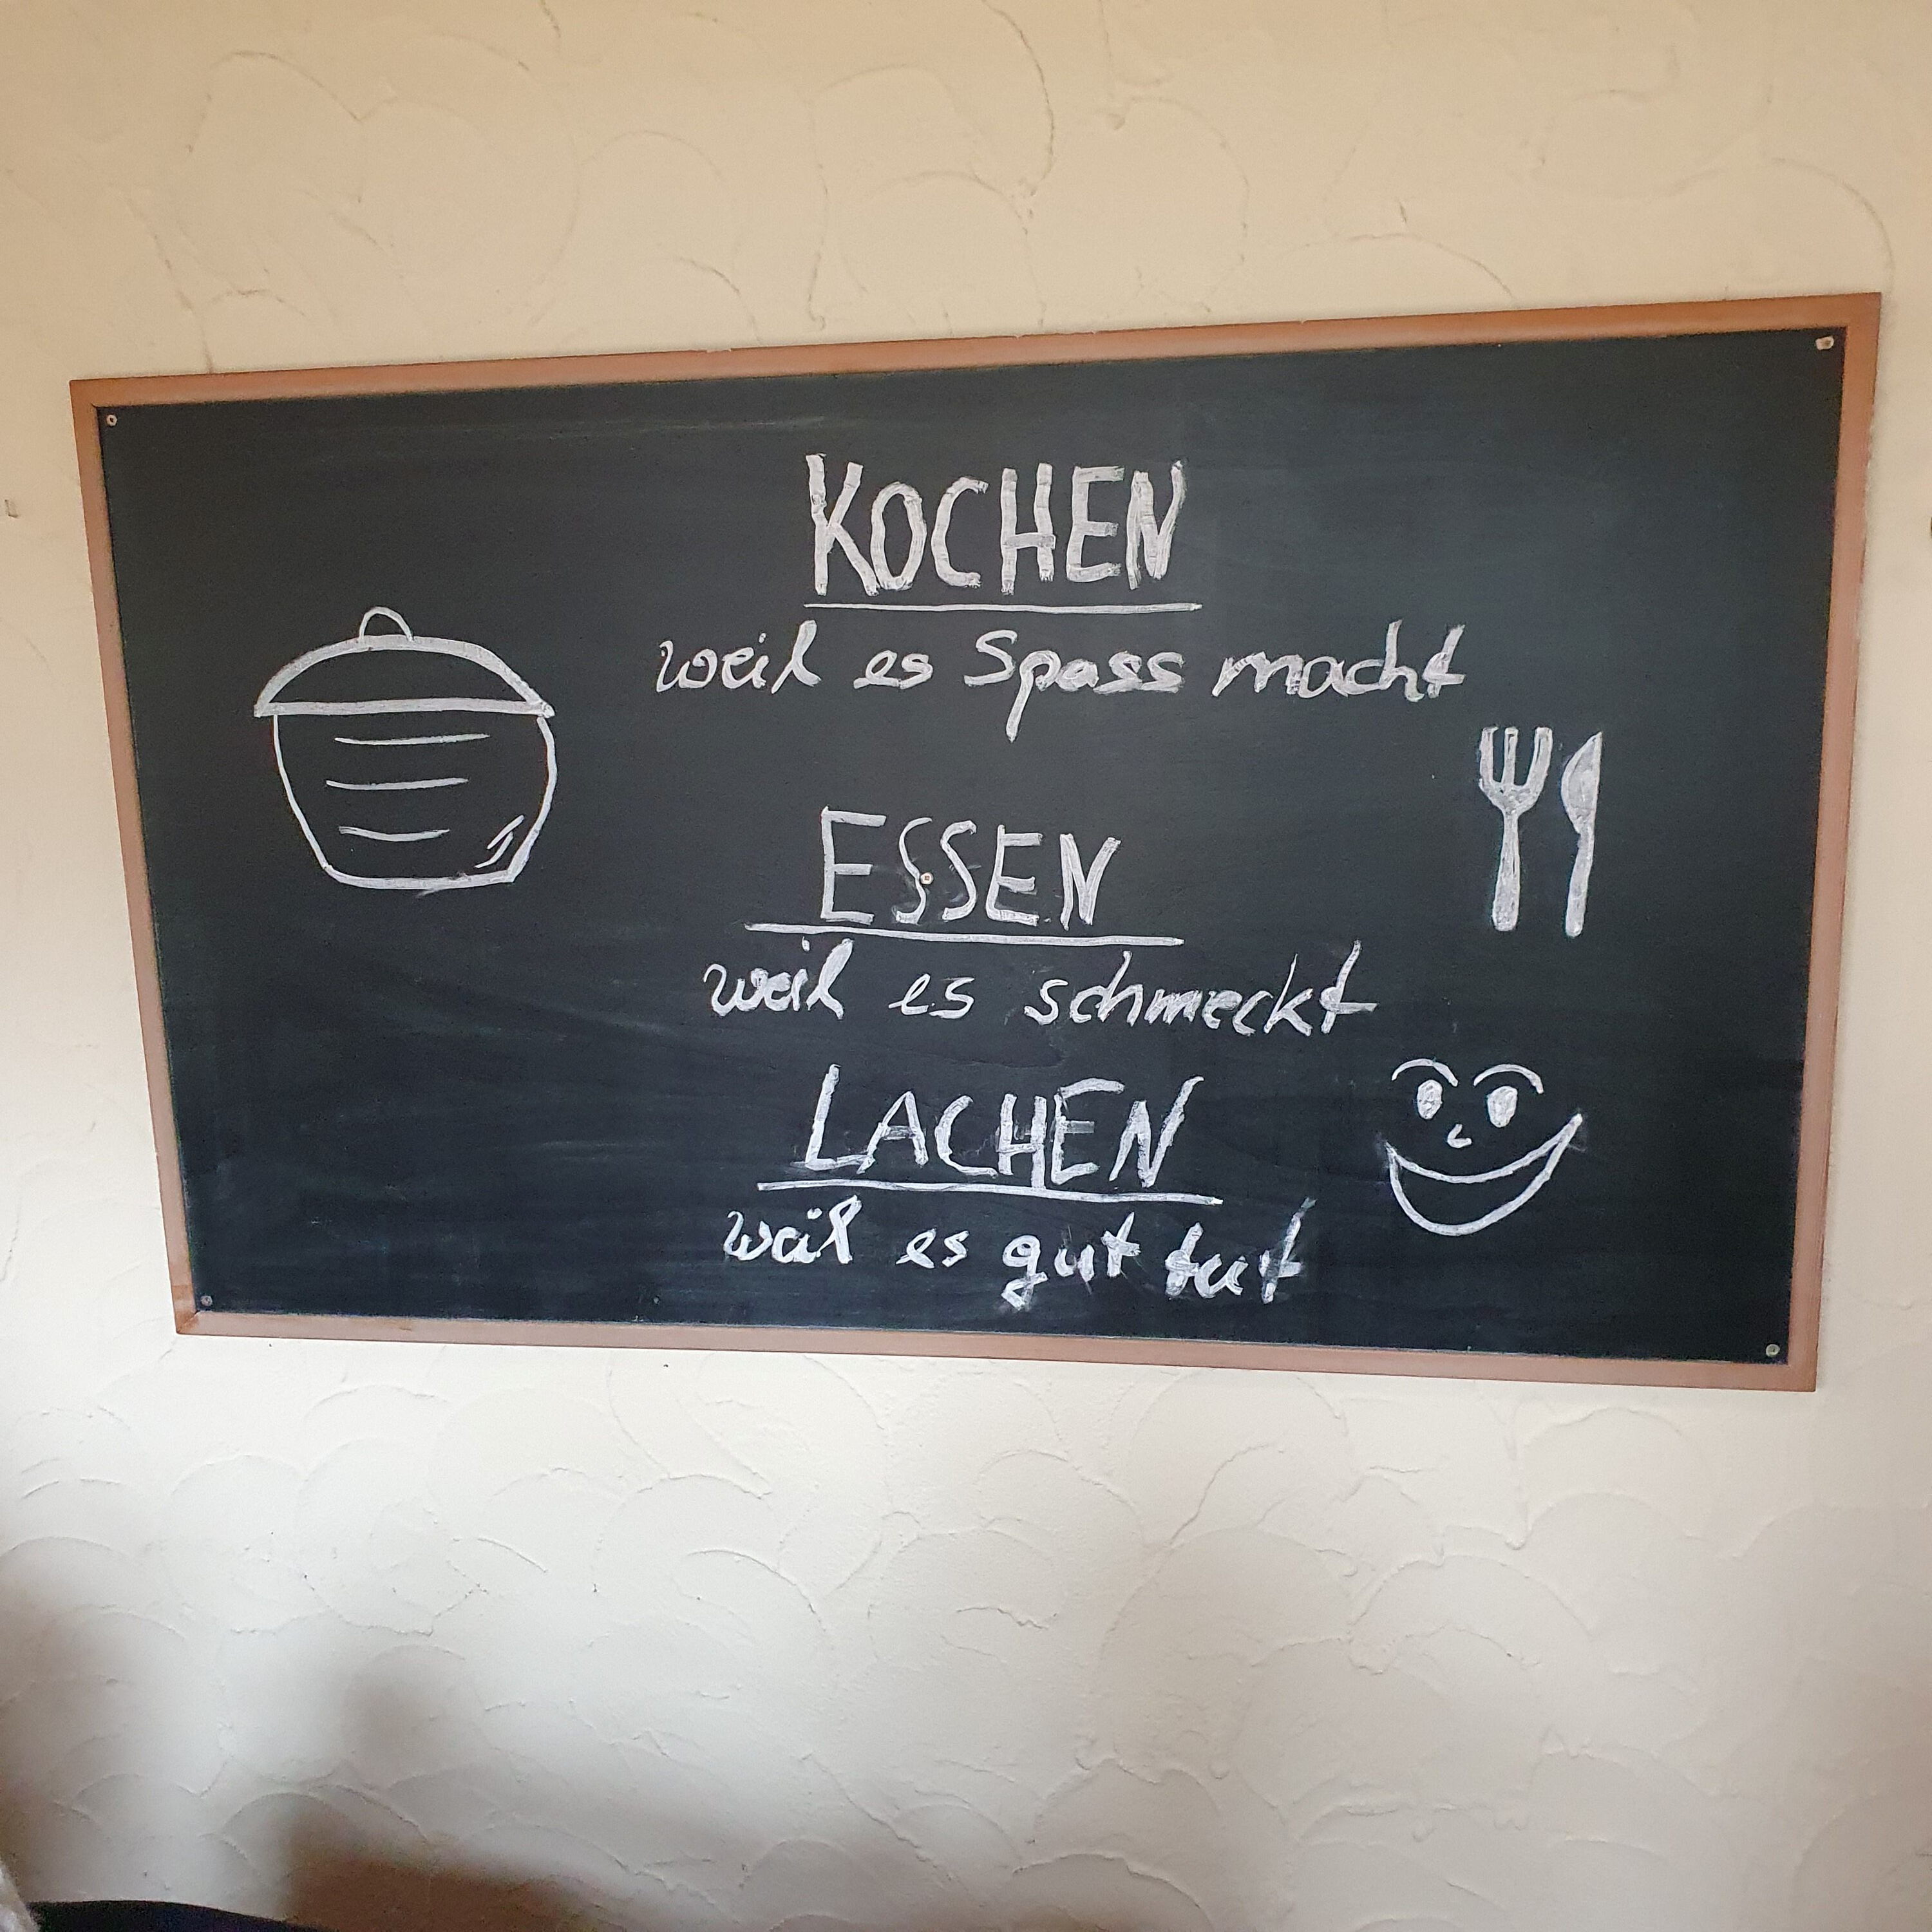 KOCHEN
weil es Spass macht
ESSEN
weil es schmeckt
LACHEN
weil es gut tut